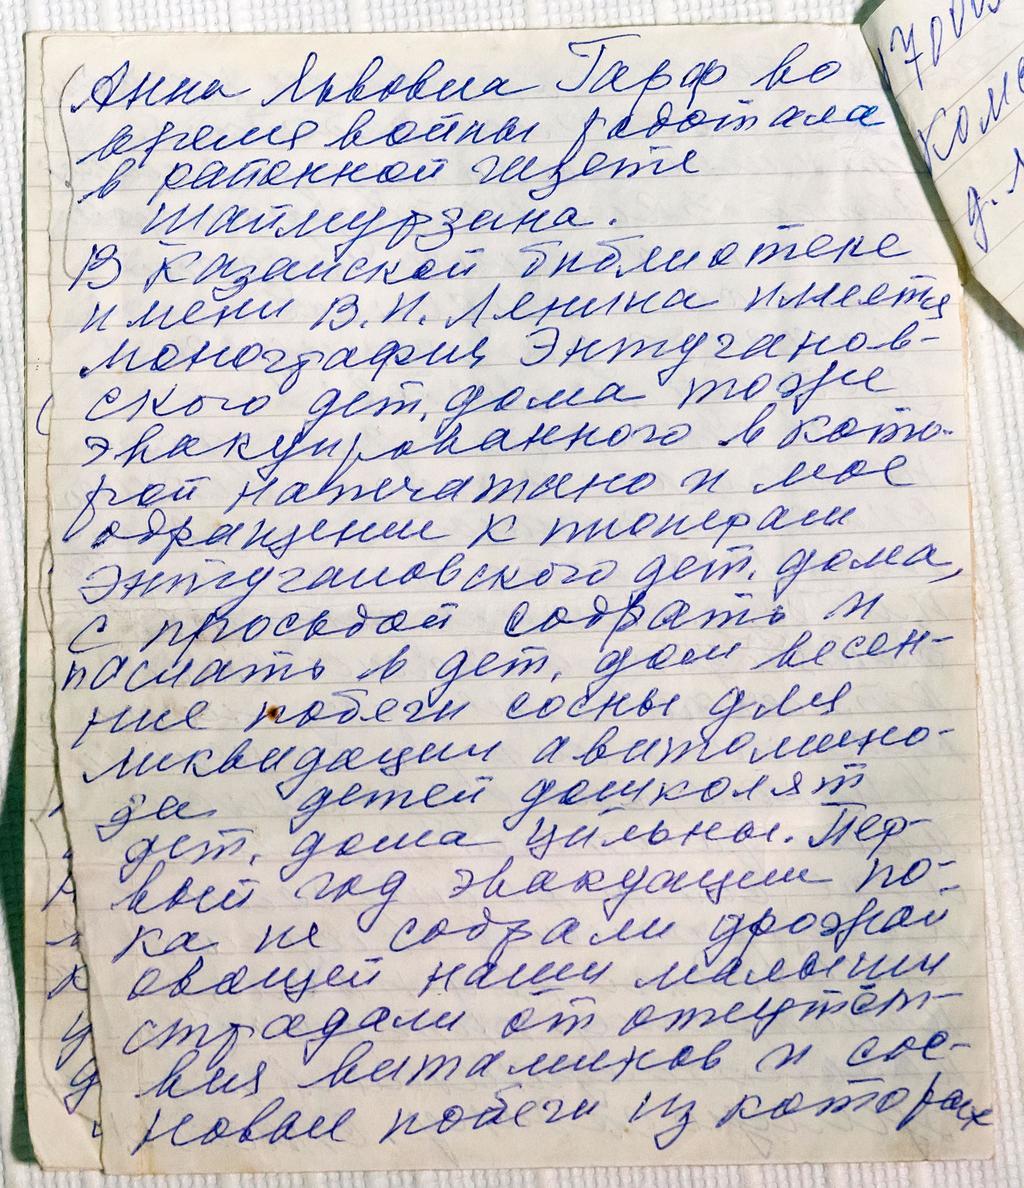 Анна Львовна Гарф во
время войны работала
в районной газете
Шаймурзана.
В Казанской библиотеке
имени В.И. Ленина имеется
монография Энтуганов-
ского дет. дома тоже
эвакуированного в кото-
рой напечатано и мое
обращение к пионерам
Энтугановского дет. дома,
с просьбой собрать и
паслать в дет. дом весен-
ние побеги сосны для
ликвидации авитомино-
за детей дошколят
дет. дома Цильны. Пер-
вый год эвакуации по-
ка не собрали урожай
овощей наши малыши
страдали от отсутст-
вия витаминов и сос-
новые побеги из которых